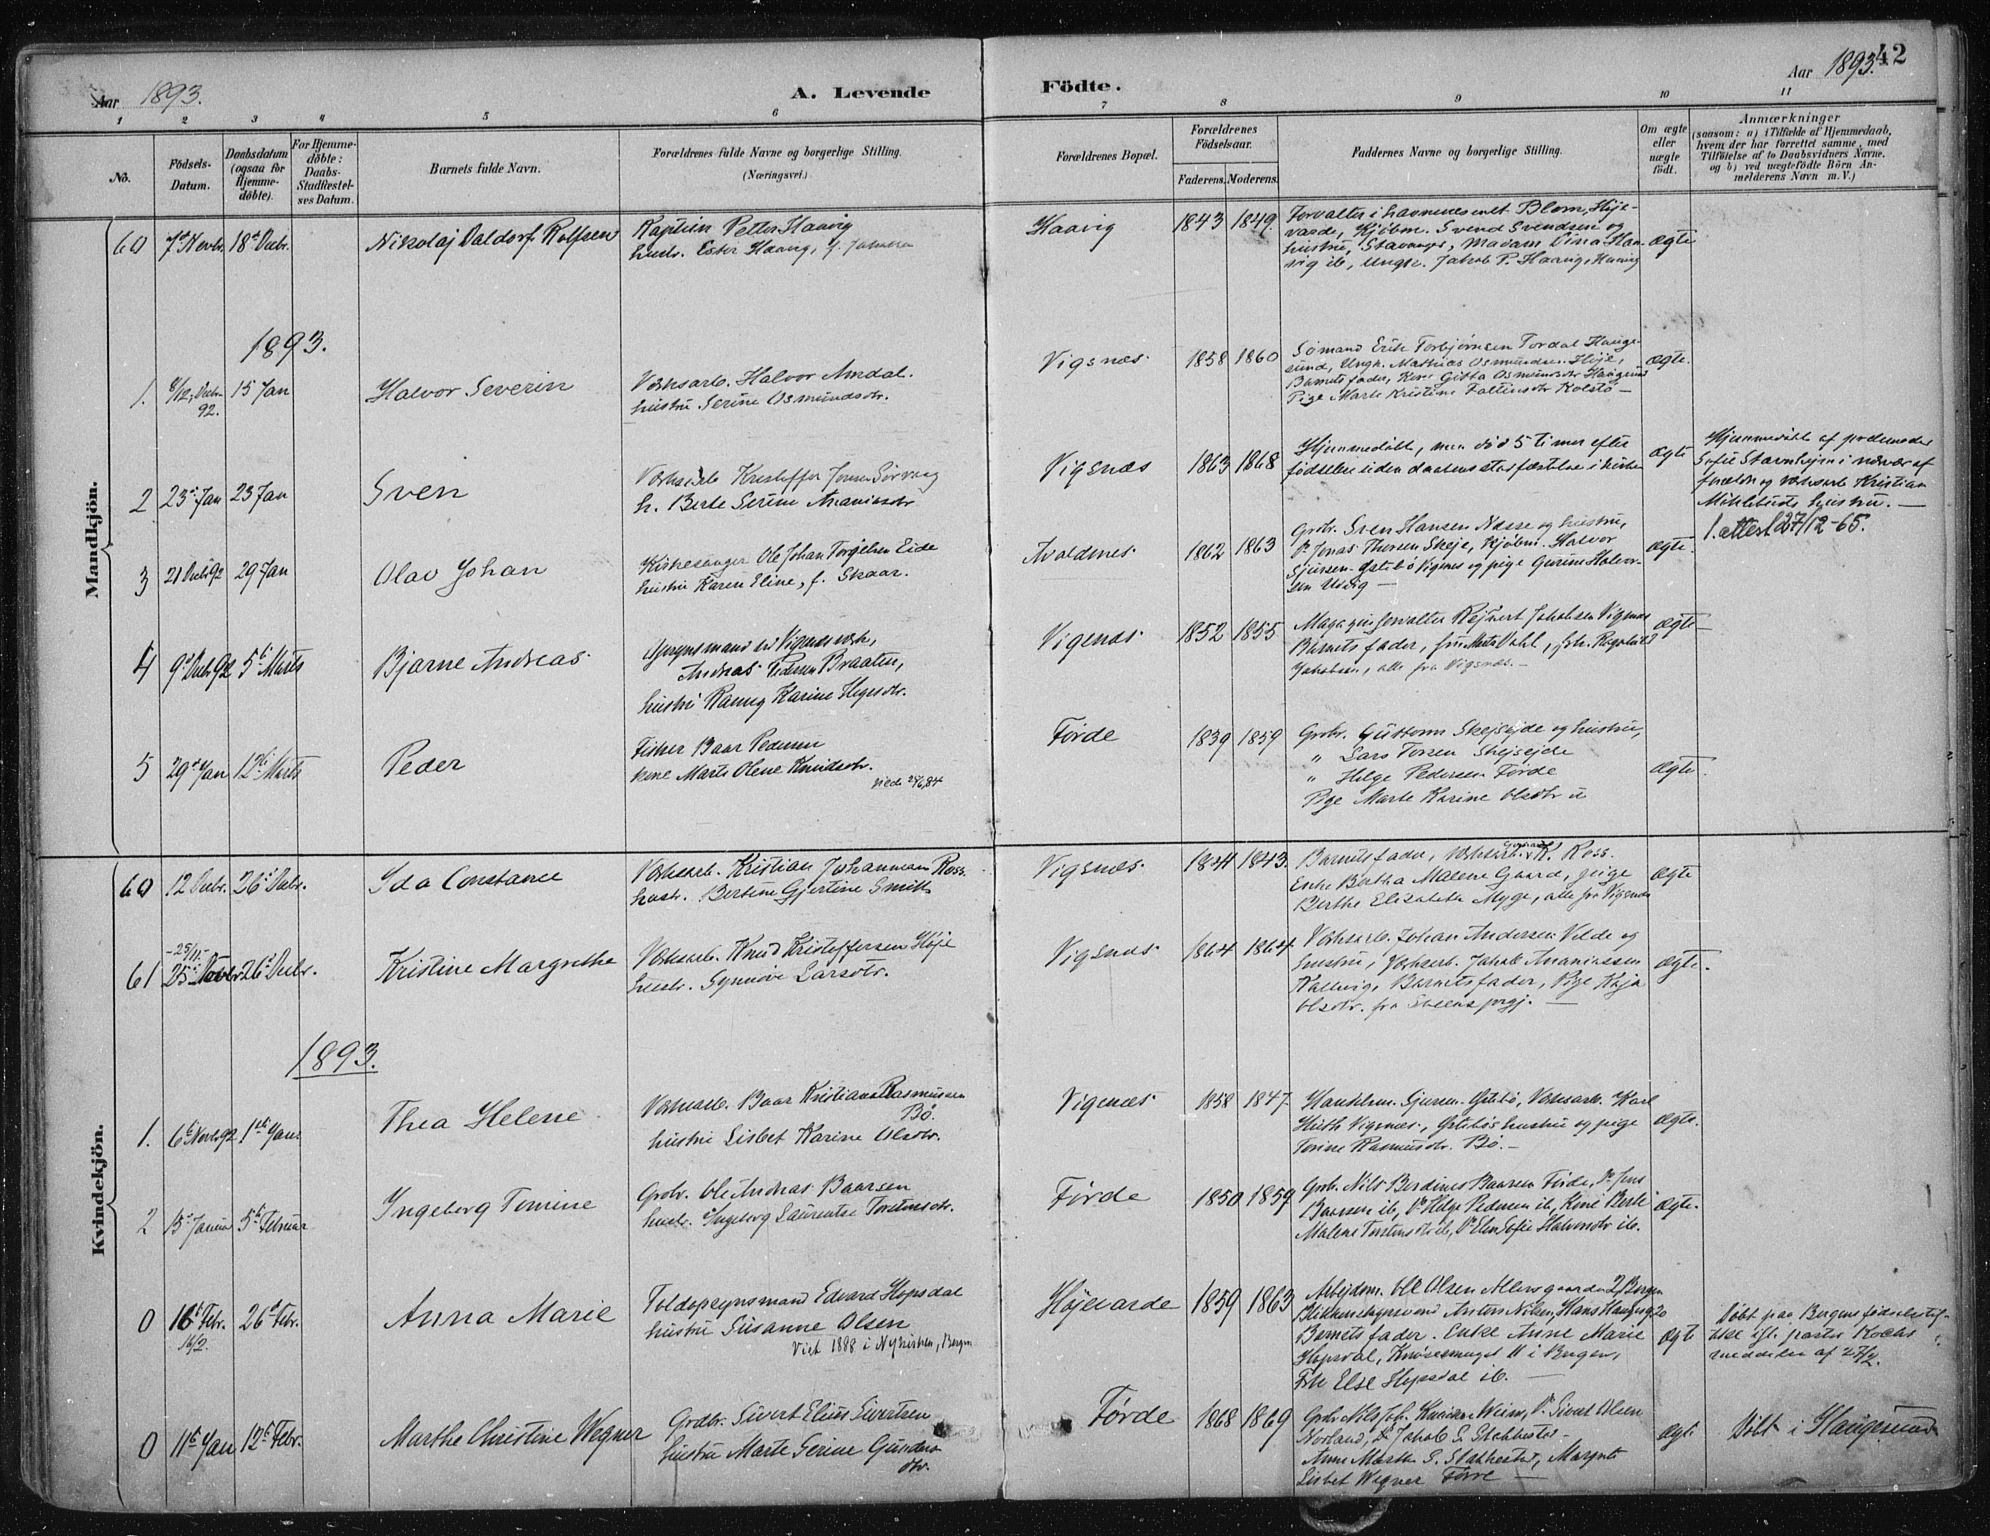 Aar 1893.
A. Levende
Födte.
Aar 1893. 42
1 2 3 4 5 6 7 8 9 10 11
No.
Födsels-
Datum.
Daabsdatum
(ogsaa for
Hjemme-
døbte).
For Hjemme-
døbte:
Daabs-
Stadfæstel-
ses Datum.
Barnets fulde Navn.
Forældrenes fulde Navne og borgerlige Stilling.
(Næringsvei.)
Forældrenes Bopæl.
Forældrenes
Födselsaar.
Faderens. Moderens.
Faddernes Navne og borgerlige Stilling.
Om ægte
eller
uægte
født.
Anmærkninger
(saasom: a) i Tilfælde af Hjemmedaab,
hvem der har forrettet samme, med
Tilføielse af to Daabsvidners Navne.
og b) ved uægtefödte Börn An-
melderens Navn m. V.)
Mandkjön.
60 7de Novbr. 18de Decbr. Nikolaj Valdorf Rolfsen
Kaptein Petter Haavig
hustr. Ester Haavig, f.
Haavig 1843 1849.
Forvalter i havnevesenet Blom, Høje-
varde, Kjøbm. Svend Svendsen og
hustru, Stavanger, Madam Dina Haa-
vig ib, Ungk. Jakob P. Haavig, Haavig
ægte
1893.
1. Decbr. 92. 15 Jan Halvor Severin
Værksarb. Halvor Amdal.
hustru Serine Osmundsdtr.
Vigsnæs. 1858 1860
Sømand Erik Torbjørnsen Tordal Hauge-
sund, Ungk. Mathias Osmundsen Høje,
Barnets fader, Kone Gitta Osmundsdtr Haugesund
Pige Marte Kristine Kolstø —
ægte.
2 23de Jan 23 Jan Sven
Værksarb Kristoffer Jonsen Sørvaag
h. Berte Serine Ananiasdtr
Vigsnæs 1863 1868
Hjemmedøbt, men død 5 timer efter
fødselen uden daabens stadfæstelse i kirken
ægte
Hjemmedøbt af jordemoder
Sofie i nærvær af
foræld. og værksarb Kristian
hustru. —
3 21 Decbr 92 29 Jan Olav Johan
Kirkesanger Ole Johan Torgilsen Eide
hustru Karen Eline, f. Skaar.
Avaldsnes 1862 1863
Grdbr. Sven Hansen Nesse og hustru,
Do Jonas Thorsen Skeje, Kjøbm. Halvor
Sjursen Østebø Vigsnes og pige Gurine Halvor-
sen Utvig —
ægte.
1. attert 27/12-65.
4 9de Decbr 92 5te Marts Bjarne Andreas
Opsynsmand ved Vigsnes værk,
Andreas Pedersen Braaten,
hustru Karine
Vigsnæs 1852 1855
Magazinforvalter Rejnert Jakobsen Vigsnes
Barnets fader, fru Marta Dahl, frk. Ragnhild
Jakobsen, alle fra Vigsnæs. —
ægte
5 29de Jan 12te Marts Peder
Fisker Baar Pedersen
kone Marte Olene Knudsdtr.
viede 24/6,84
Førde 1839 1859
Grdbr. Guttorm Skejsejde og hustru,
" Lars Torsen Skejsejde
" Helge Pedersen Førde
Pige Marte Karine Olsdtr
ægte.
Kvindekjön.
60 12 Decbr. 26de Decbr. Ida Constance
Værksarb. Kristian Johannesen Ross
hustr. Bertine Gjertine Smith
Vigsnæs 1844 1843.
Barnets fader, Værksarb. K. Ross.
Enke Bertha Malene Gaard, pige
Berthe Elisabeth Myge, alle fra Vigsnes
ægte
61 25/11 26de Decbr. Kristine Margrethe
Værksarb. Knud Kristoffersen Høje
hustr. Synnøve Larsdtr.
Vigsnæs. 1864 1864.
Værksarb. Johan Andersen Velde og
hustru, Værksarb. Jakob Ananiassen
Kallevig, Barnets fader, Pige Kaja
Olsdtr. fra Skeens prgj. —
ægte.
1893.
1. 6te Novbr 92 1ste Janr Thea Helene
Værksarb. Baar Kristian Rasmussen
Bø.
hustru Lisbet Karine Olsdtr.
Vigsnæs 1858 1847.
Handelsm. Sjursen Østebø, Værksarb. Karl
Huth Vigsnæs, Østebøs hustru og pige
Torine Rasmusdtr. Bø. —
ægte.
2 13de Januar 5te Februar Ingeborg Tomine
Grdbr. Ole Andreas Baarsen
hustr. Ingeborg Laurentse Torstensdtr.
Førde 1850 1859
Grdb. Nils Berdines Baarsen Førde, Do Jens
Baarsen ib, Do Helge Pedersen ib, Kone Berte
Malene Torstensdtr ib, Do Elen Sofie Halvorsdtr ib.
ægte.
0 16de Febr. 26de Febr. Anna Marie
16/2.
Toldopsynsmand Edvard Hopsdal
hustru Susanne Olsen
Viet 1888 i Nykirken, Bergen
Højevarde 1859 1863
Arbejdsm. Ole Olsen Bergen
Anton Nilsen, Hans
Barnets fader. Enke Anne Marie
Hopsdal, Knøsesmuget 11 i Bergen,
Frk Else Hopsdal ib. —
ægte
Døbt paa Bergens fødselsstif-
telse ifl. pastor Kochs
meddelse af 27/2.
0 11te Jan 12te Febr. Marthe Christine Wegner
Grdbr. Sivert Elius Sivertsen
hustru Marte Serine Gunders
dtr.
Førde 1868 1869
Grdbr Nils Joh. Knudsen Weim, Do Sivert Olsen
Norland, Do Jakob S. Stakkestad
Anne Marthe S. Stakkestad, Margrete
Lisbet Wegner Førre —
ægte
Døbt i Haugesund